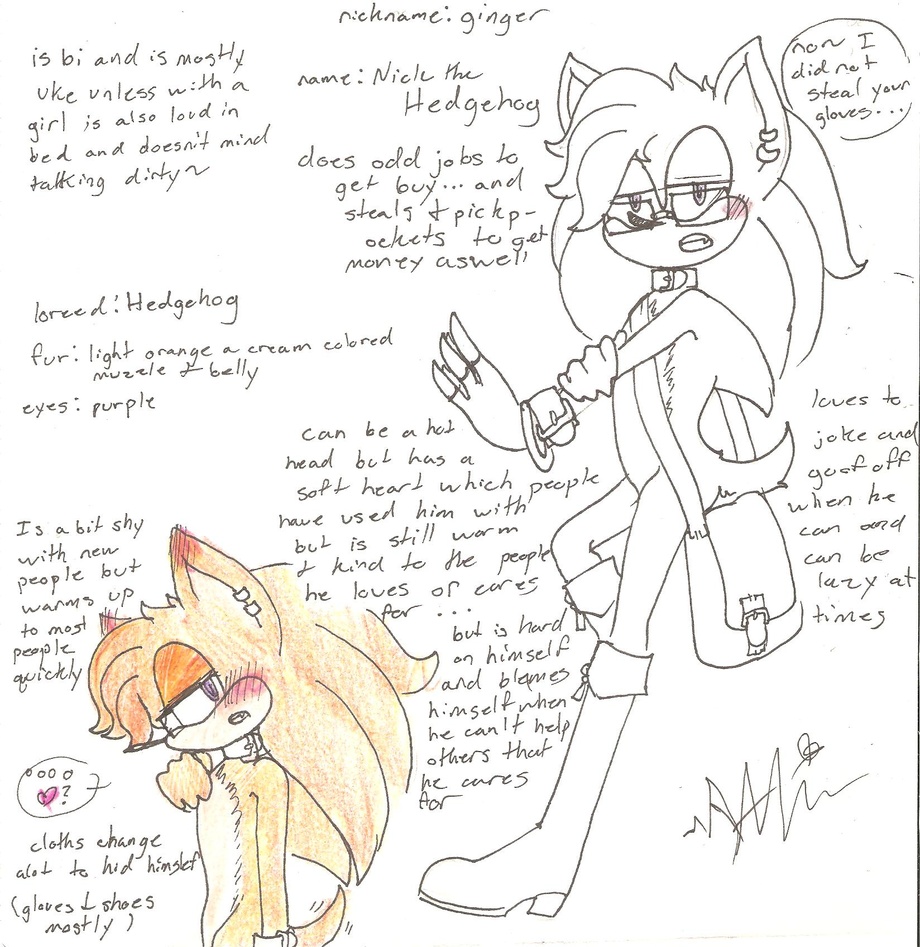 nickname: ginger
is bi and is mostly
uke unless with a
girl is also loud in
bed and doesn't mind
talking dirty~
name: Nick the
Hedgehog
does odd jobs to
get buy... and
steals & pickp-
ockets to get
money aswell
non I
did not
steal your
gloves...
breed: Hedgehog
fur: light orange a cream colored
muzzle & belly
eyes: purple
can be a hot
head but has a
soft heart which people
have used him with
but is still warm
& kind to the people
he loves or cares
for ...
but is hard
on himself
and blames
himself when
he can't help
others that
he cares
for
loves to
joke and
goof off
when he
can and
can be
lazy at
times
Is a bit shy
with new
people but
warms up
to most
people
quickly
?
cloths change
alot to hid himslef
(gloves & shoes
mostly)